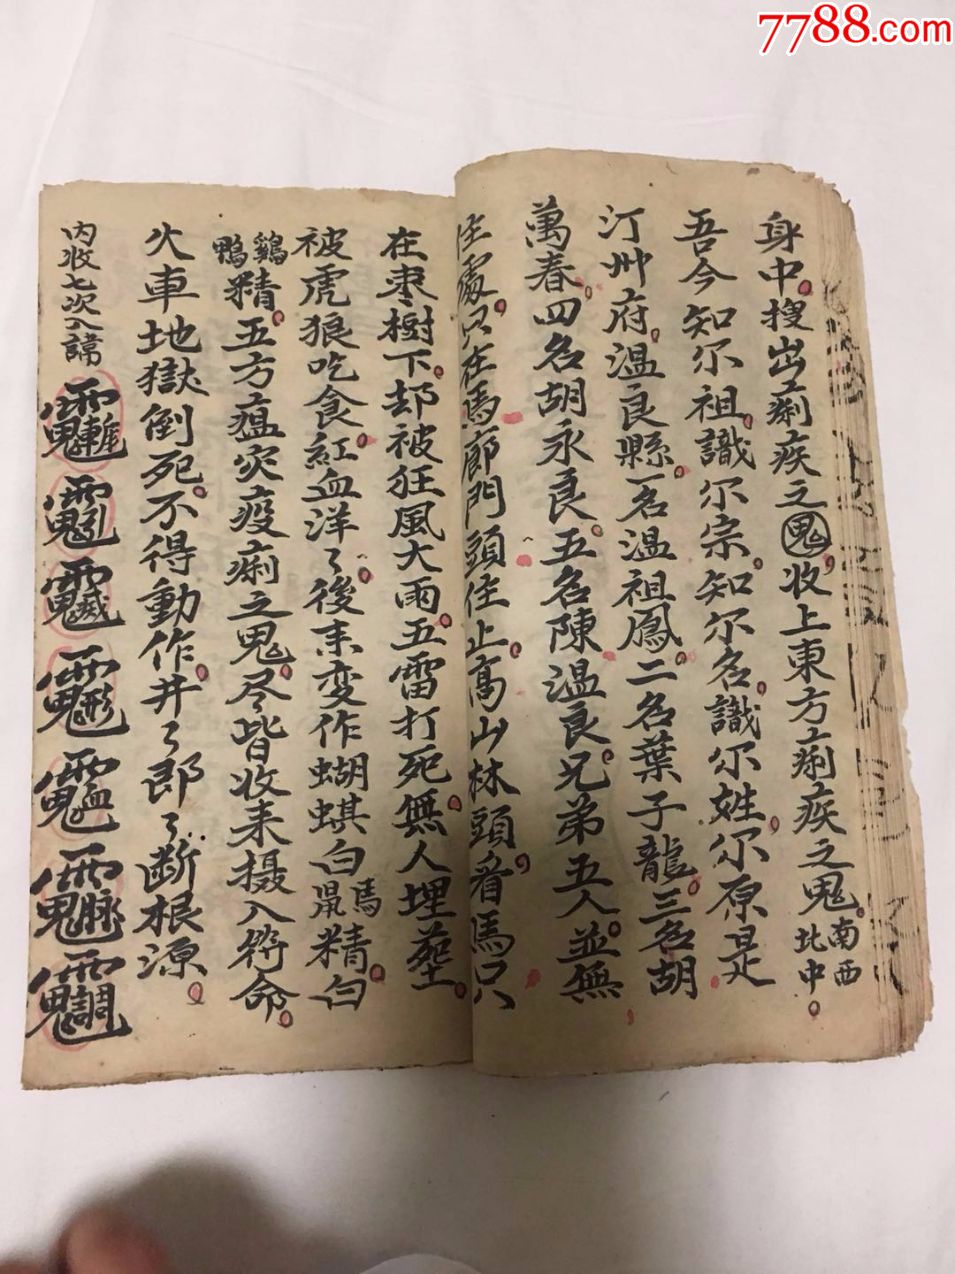 7788.com
身中搜出痢疾之鬼收上東方痢疾之鬼南西北中
吾今知尔祖識尔宗知尔名識尔姓尔原是
汀州府溫良縣一名溫祖鳳二名葉子龍三名胡
萬春四名胡永良五名陳溫良兄弟五人並無
住處只在馬廊門頭住止高山林頭看馬只
在棗樹下却被狂風大雨五雷打死無人埋塟
被虎狼吃食紅血洋々後来变作蝴蜞白鼠馬精白
鷄鴨精五方瘟灾疫痢之鬼尽皆收来摄入符命
火車地獄倒死不得動作井々郎々断根源
内收七次入諱